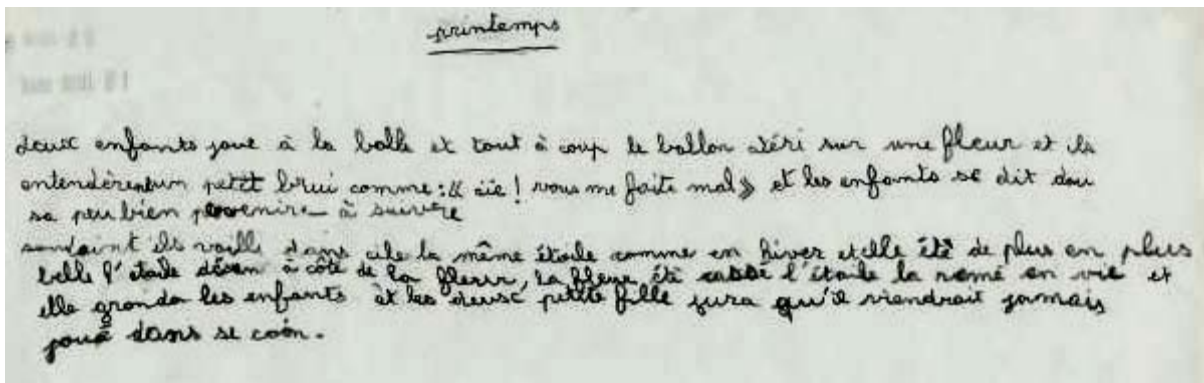 printemps
deux enfants joue à la balle et tout à coup le ballon atéri sur une fleur et ils
entendèrent un petit brui comme : « aïe ! vous me faite mal » et les enfants se dit dou
sa peu bien provenire à suivre
soudaint ils vaille dans cile la même étoile comme en hiver et elle été de plus en plus
belle l'étoile désen à côté de la fleur, la fleur été cassé l'étoile la remé en vie et
elle gronda les enfants et les deusc petite fille jura qu'il viendrait jamais
joué dans se coin.